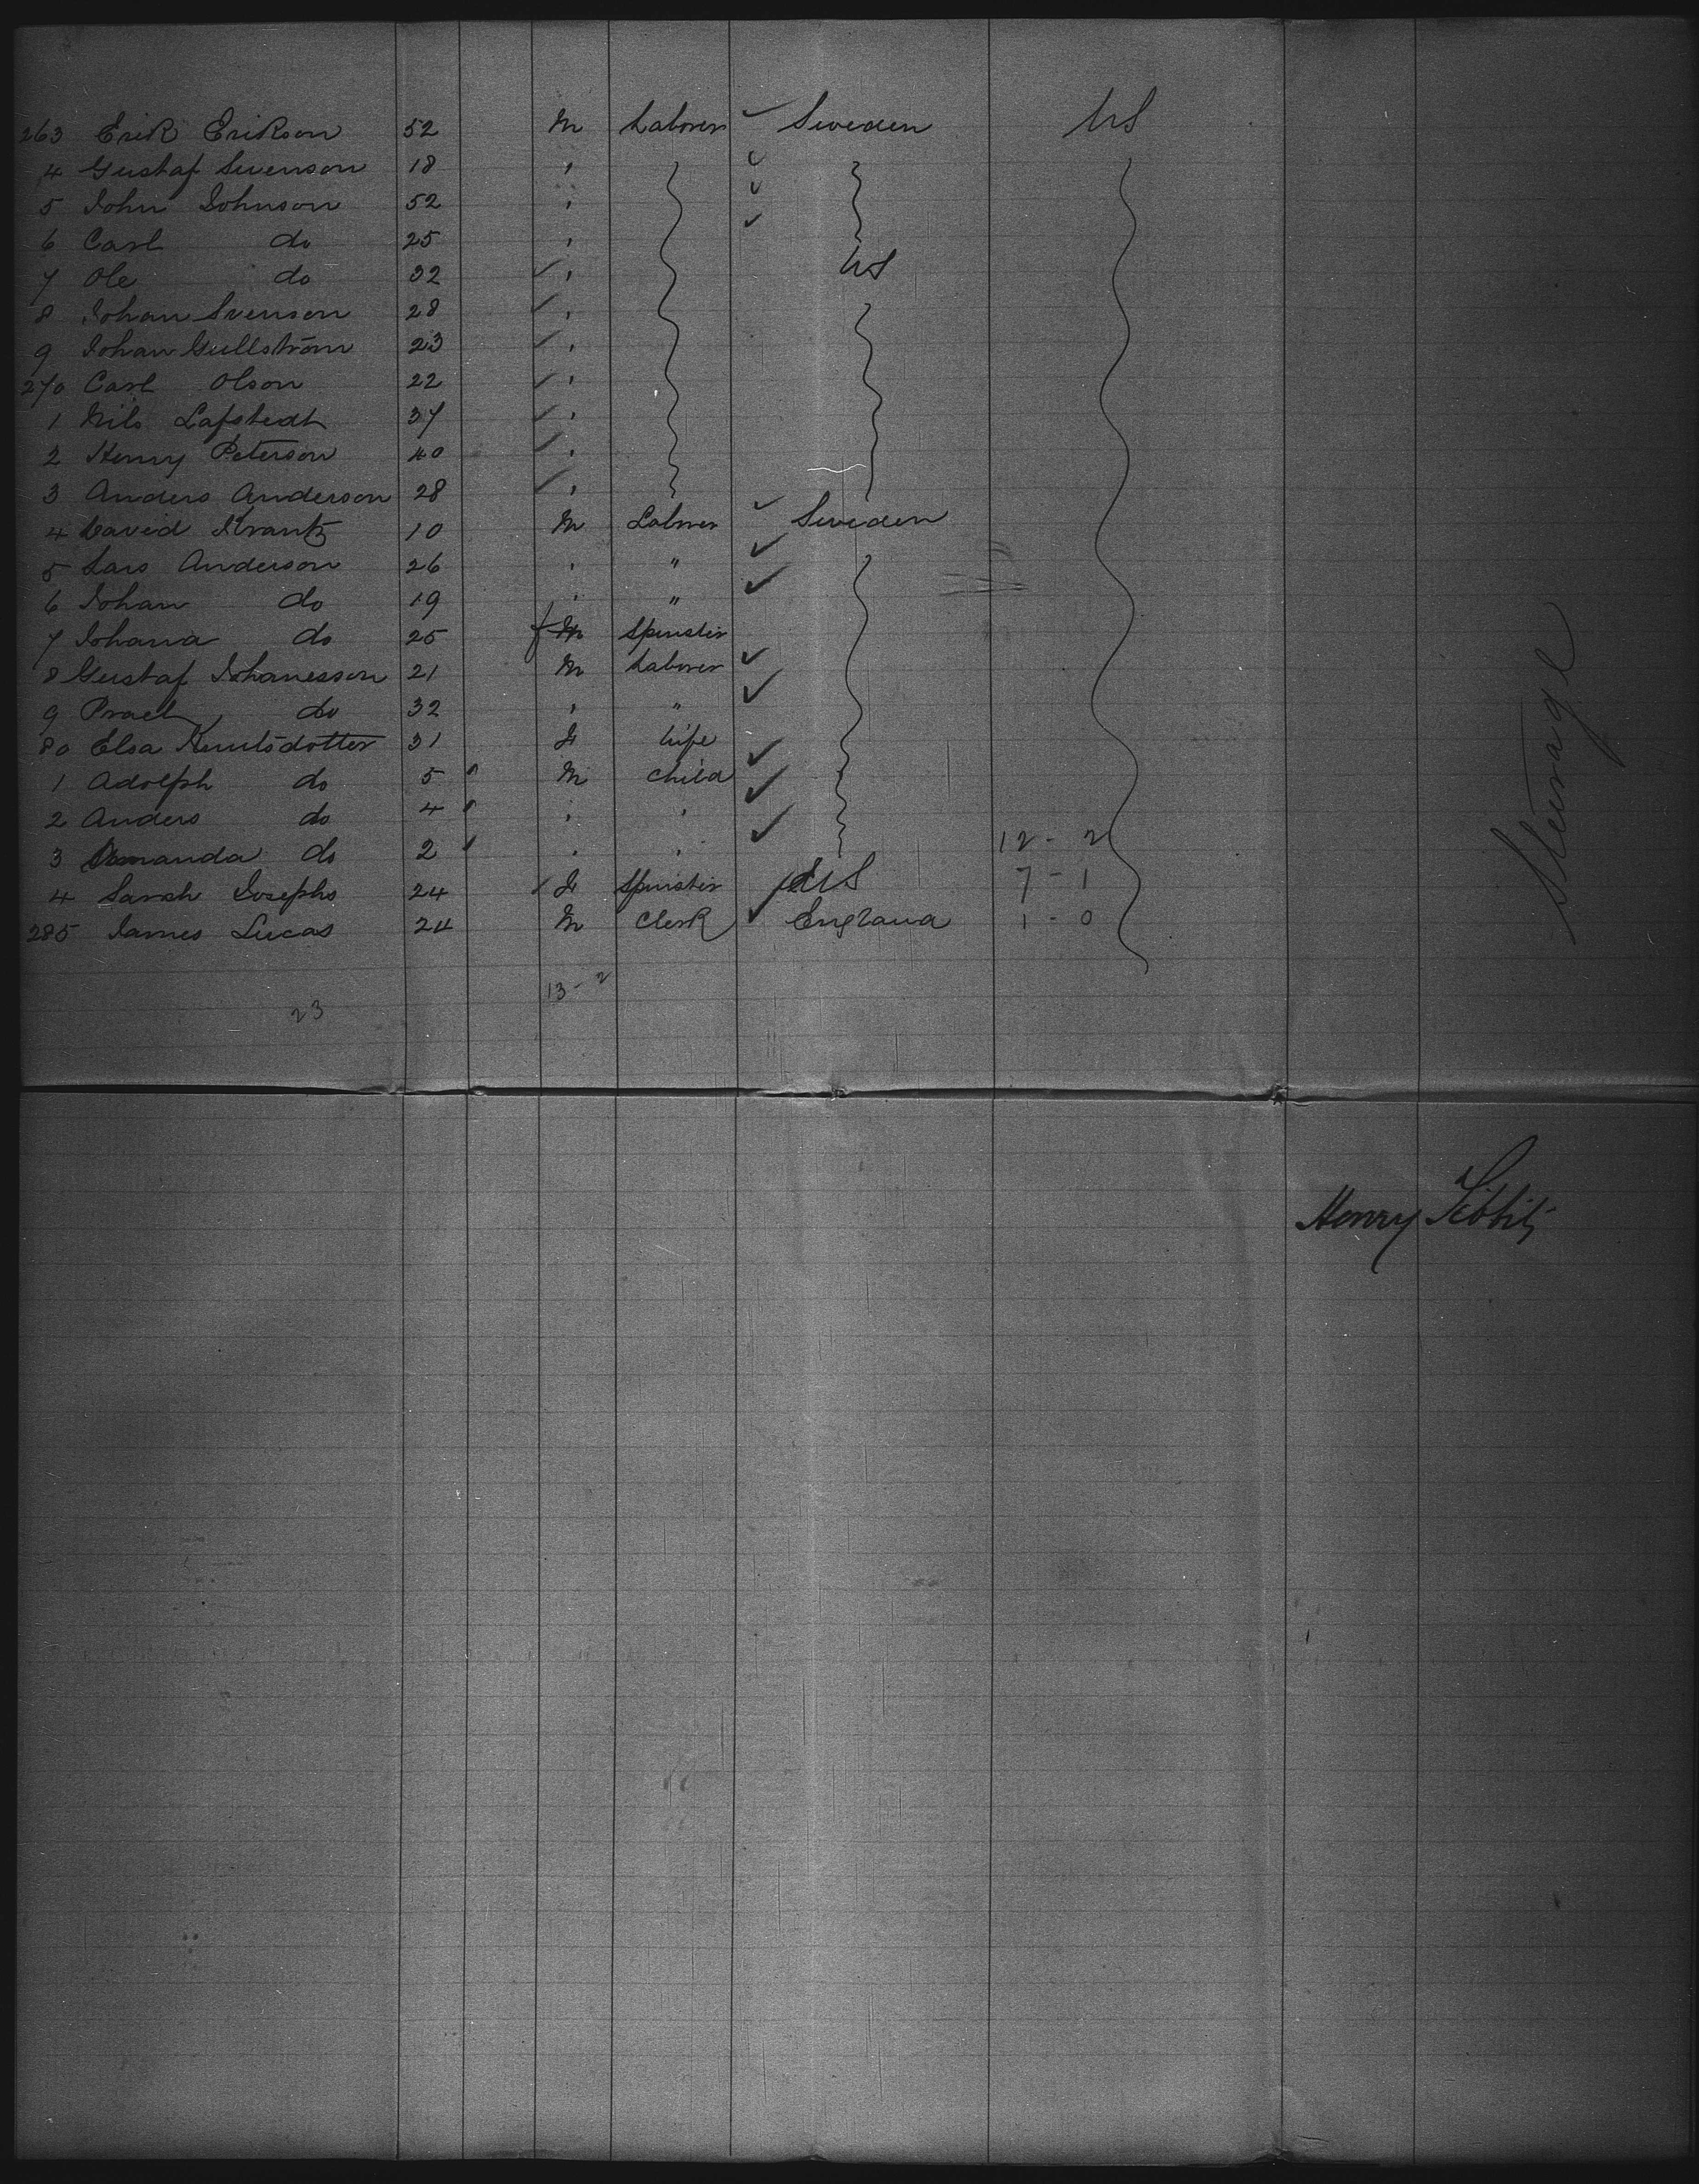 263 Erik Erikson 52 M Laborer ✓ Sweden US
4 Gustaf Svenson 18 " ✓
5 John Johnson 52 " ✓
6 Carl do 25 " ✓
7 Ole do 32 ✓ " US
8 Johan Svenson 28 ✓ "
9 Johan Gullström 23 ✓ "
270 Carl Olson 22 ✓ "
1 Nils Lafstedt 37 ✓ "
2 Henry Peterson 40 ✓ "
3 Anders Anderson 28 ✓ "
4 David Krantz 10 M Laborer ✓ Sweden
5 Lars Anderson 26 " " ✓
6 Johan do 19 " " ✓
7 Johana do 25 f Spinster
8 Gustaf Johanesson 21 M Laborer ✓
9 do 32 " " ✓
80 Elsa Knutsdotter 31 F Wife
1 Adolph do 5 M Child ✓
2 Anders do 4 " " ✓
3 Amanda do 2 " " ✓ 12 - 2
4 Sarah Josephs 24 ✓ F Spinster US 7 - 1
285 James Lucas 24 M Clerk ✓ England 1 - 0
13 - 2
23
Steerage
Henry